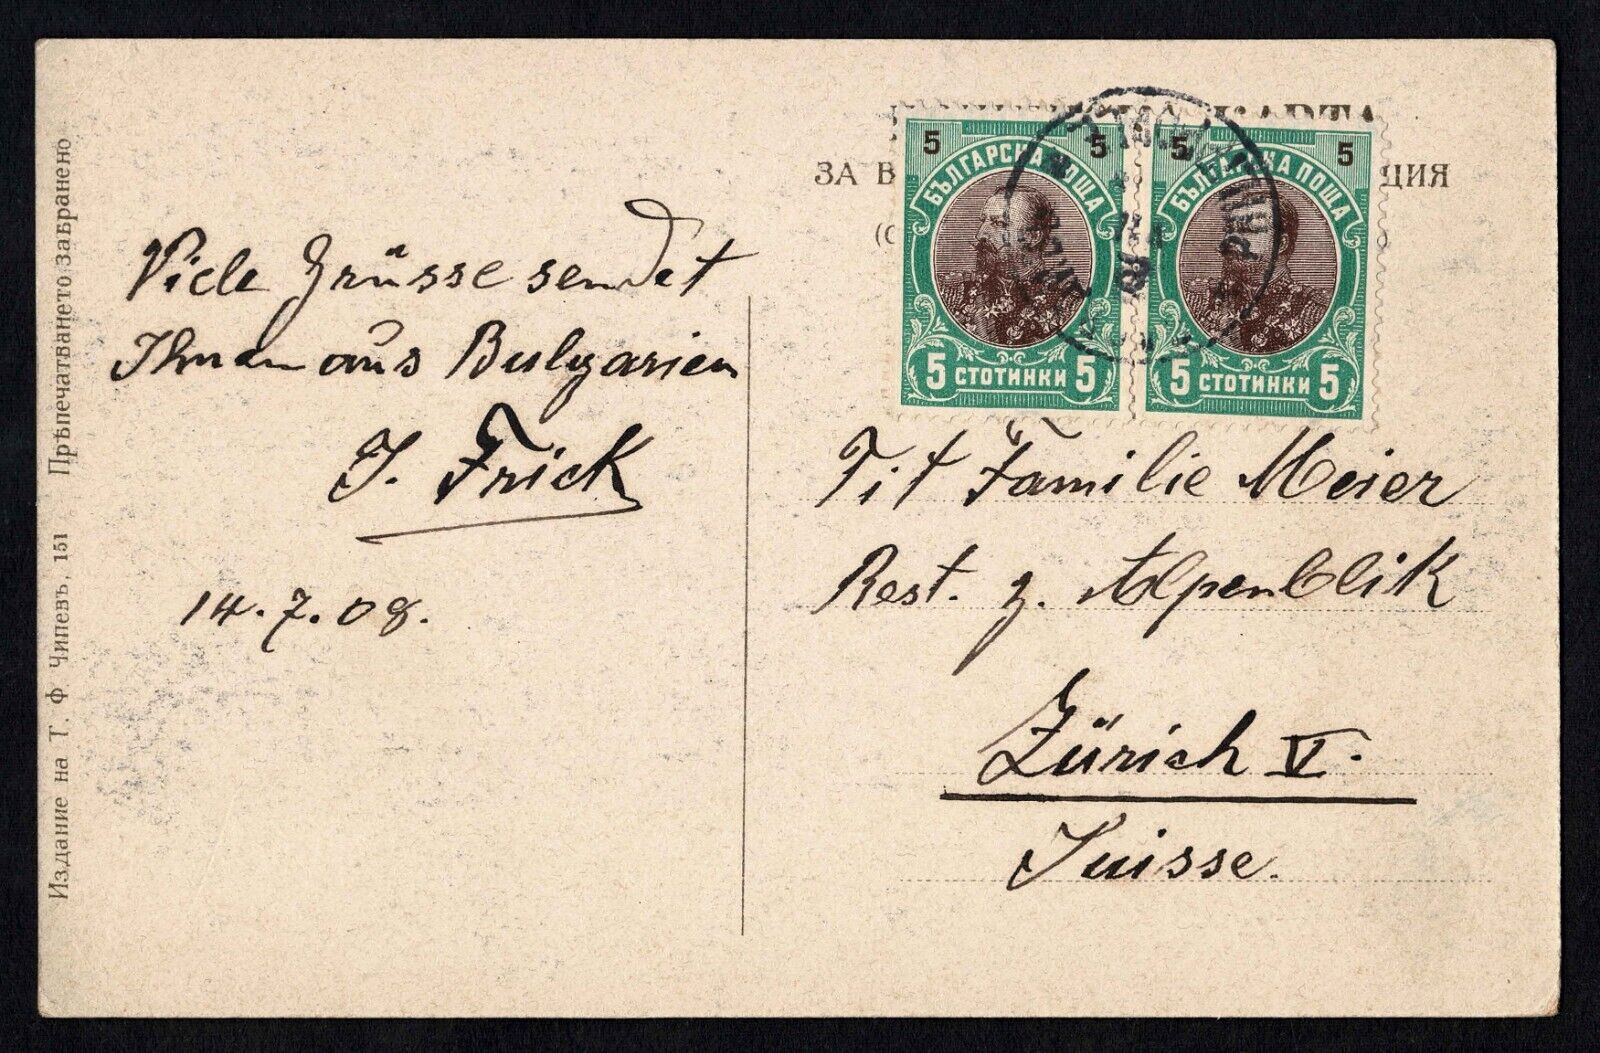 Препечатването забранено
Издание на Т. Ф. Чипевъ, 151
Viele Grüsse sendet
Ihnen aus Bulgarien
J. Frick
14.7.08.
КАРТА
ЗА В ЦИЯ
5 5
БЪЛГАРСКА ПОЩА
5 СТОТИНКИ 5
5 5
БЪЛГАРСКА ПОЩА
5 СТОТИНКИ 5
Tit Familie Meier
Rest. z. Alpenblik
Zürich V.
Suisse.